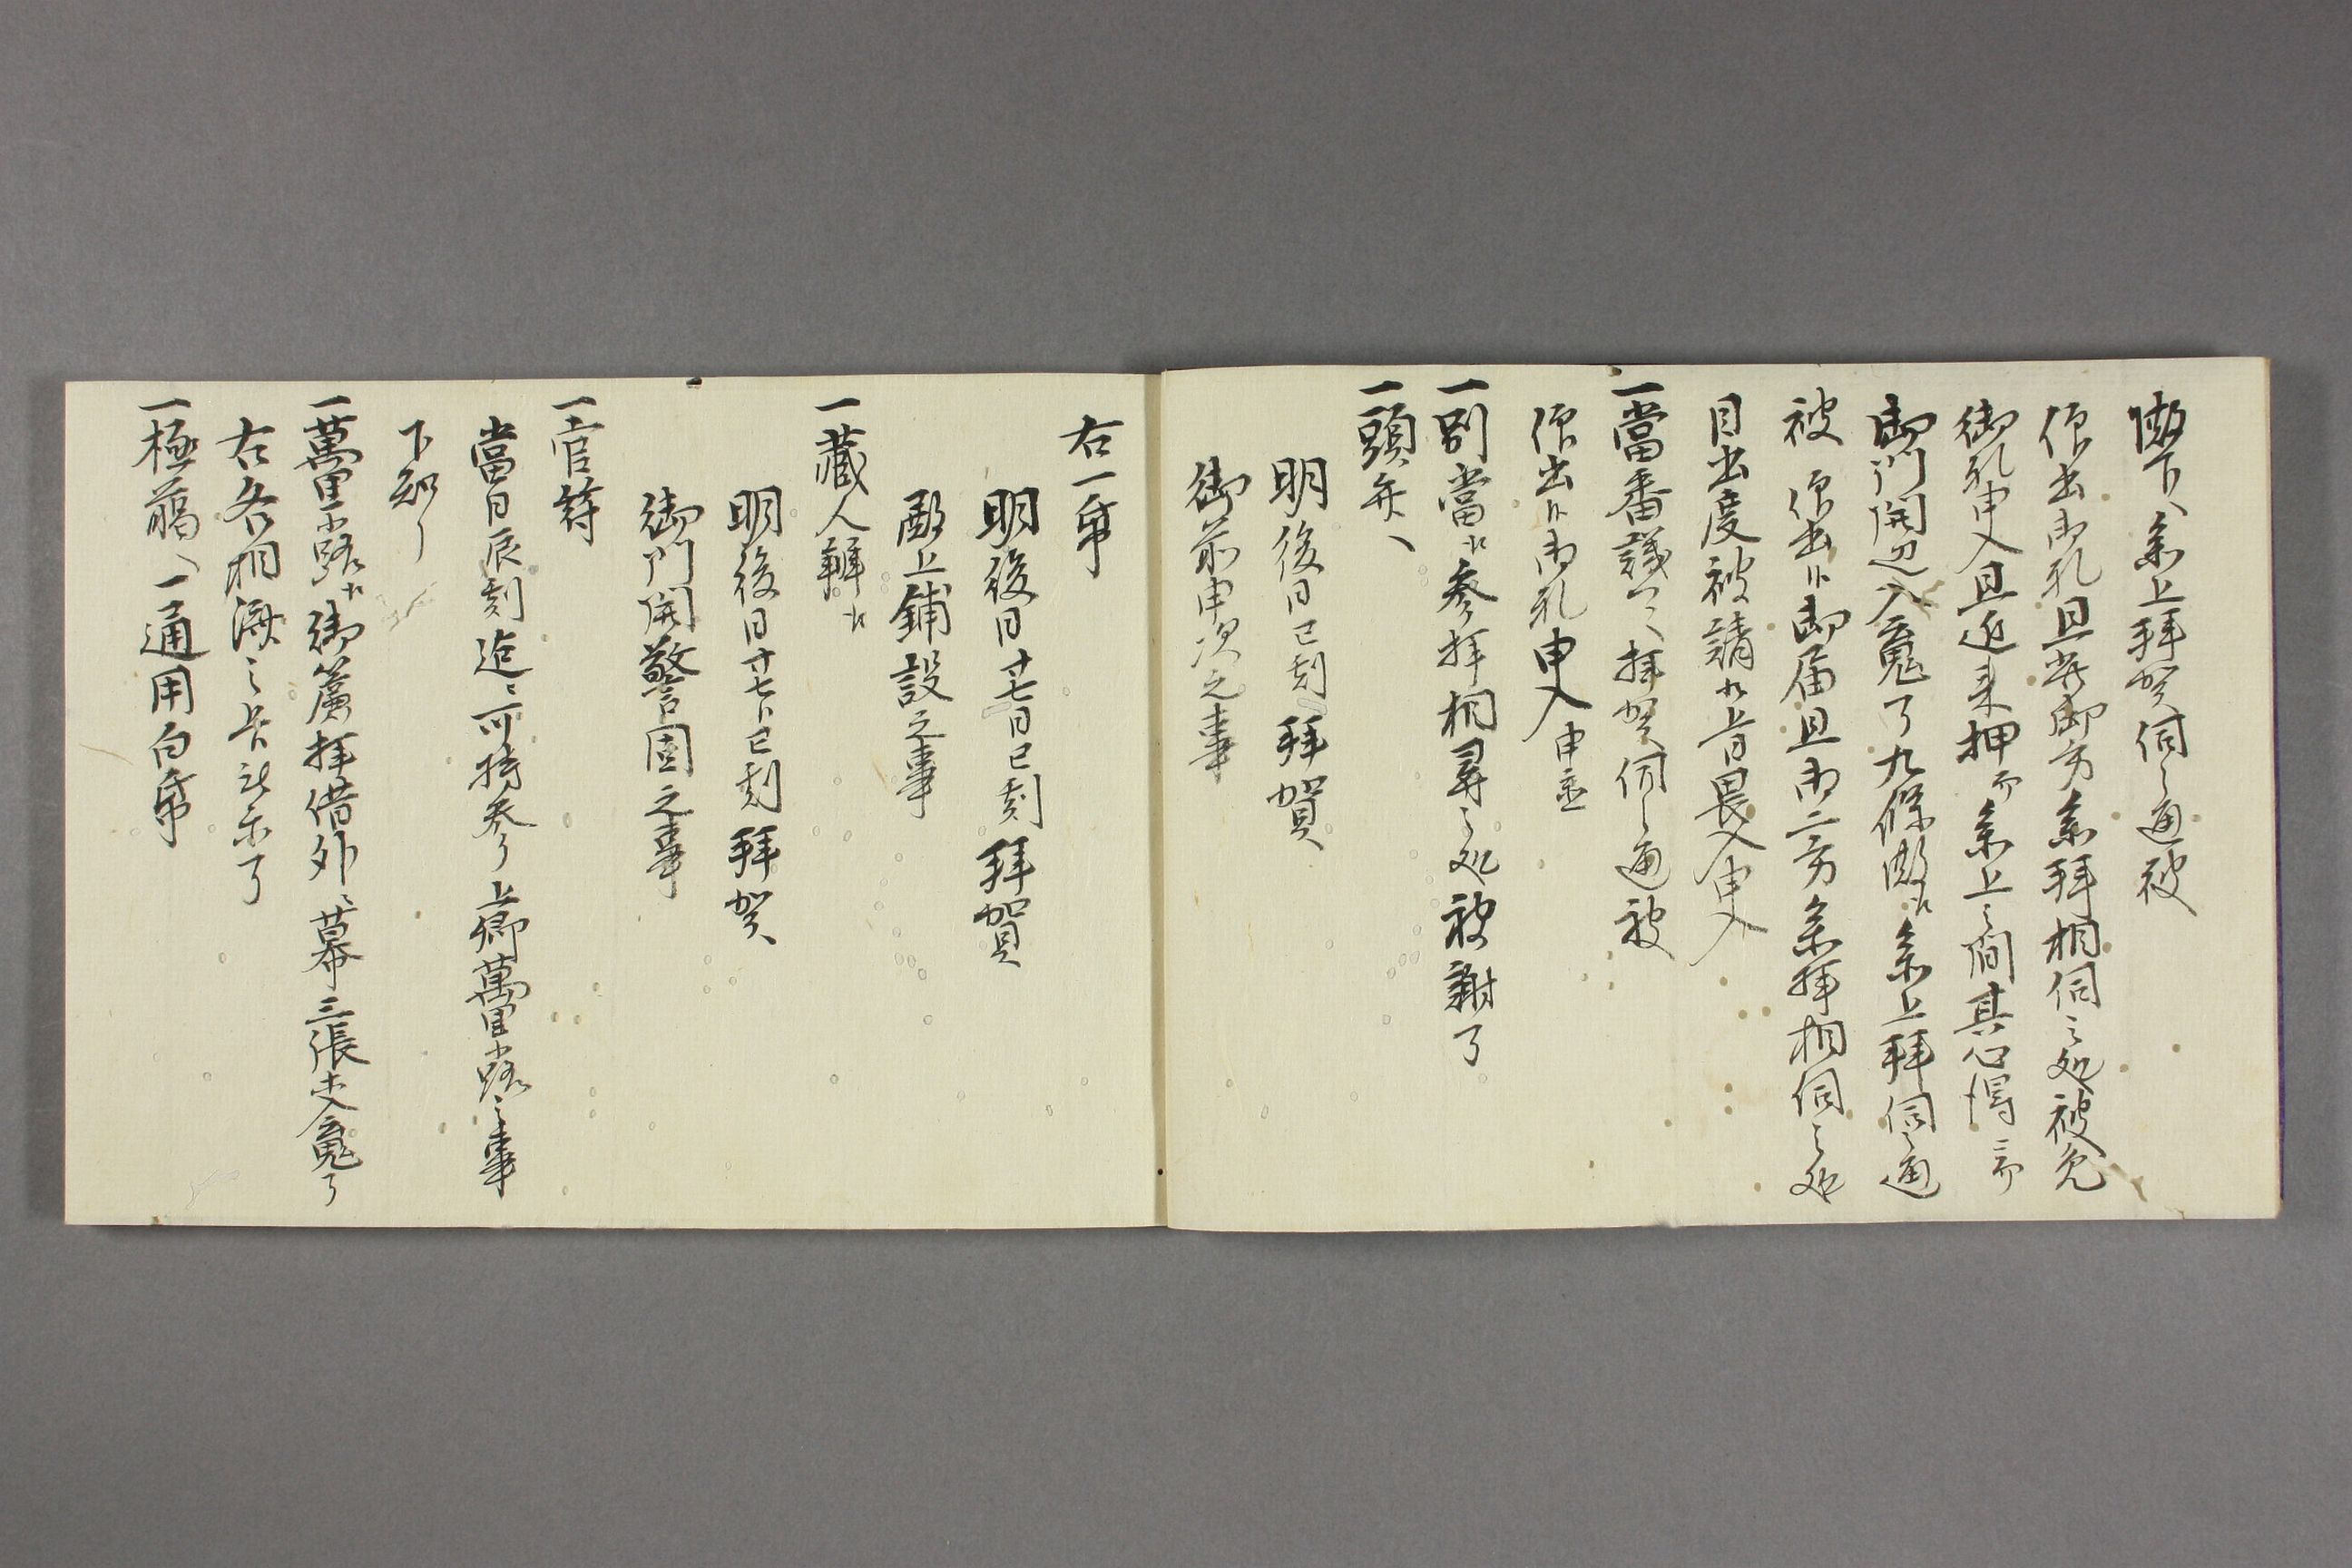 殿下へ参上拝賀伺之通被
仰出御礼且若御方参拝相伺之処被免
御礼申入且近来押而参上之間其心得ニ而
御門開辺入魂了九條殿江参上拝伺之通
被　仰出候御届且両三方参拝相伺之処
目出度被請候旨畏入申入
一當番議へ拝賀伺之通被
仰出候御礼申入申置
一別當江参拝相尋之処被謝了
一頭弁へ
明後日巳刻拝賀
御前申次之事
右一帋
明後日廿七日巳刻拝賀
殿上鋪設之事
一藏人辨江
明後日廿七日巳刻拝賀
御門開警固之事
一官符
當日辰刻迄ニ可持参了上卿萬里小路之事
下知了
一萬里小路江御簾拝借外ニ幕三張丈入魂了
右各相済之旨被示了
一極﨟へ一通用白帋